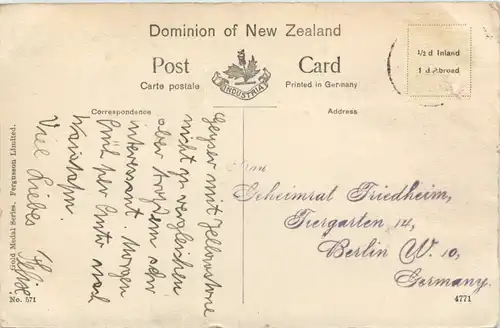 Dominion of New Zealand
Post Card
Carte postale
Printed in Germany
INDUSTRIA
½d Inland
1d Abroad
Correspondence
Address
Geyser mit Yellowstone
nicht zu vergleichen
aber trotzdem sehr
interessant. Morgen
früh per Auto nach
Wairakei.
Viel Liebes
Frau
Geheimrat Friedheim,
Tiergarten 14,
Berlin W. 10,
Germany.
Gold Medal Series. Fergusson Limited.
No. 571
4771